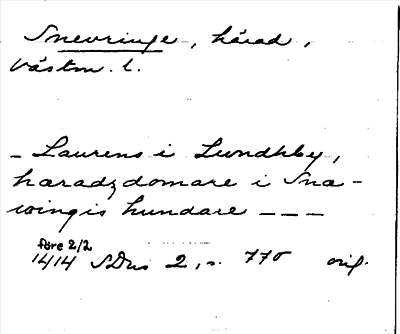 Snevringe, härad,
Västm. l.
- Laurens i Lundhby,
hæradzdomare i Snæ-
wingis hundare ---
före 2/2
1414 SDns 2, s. 770 orig.